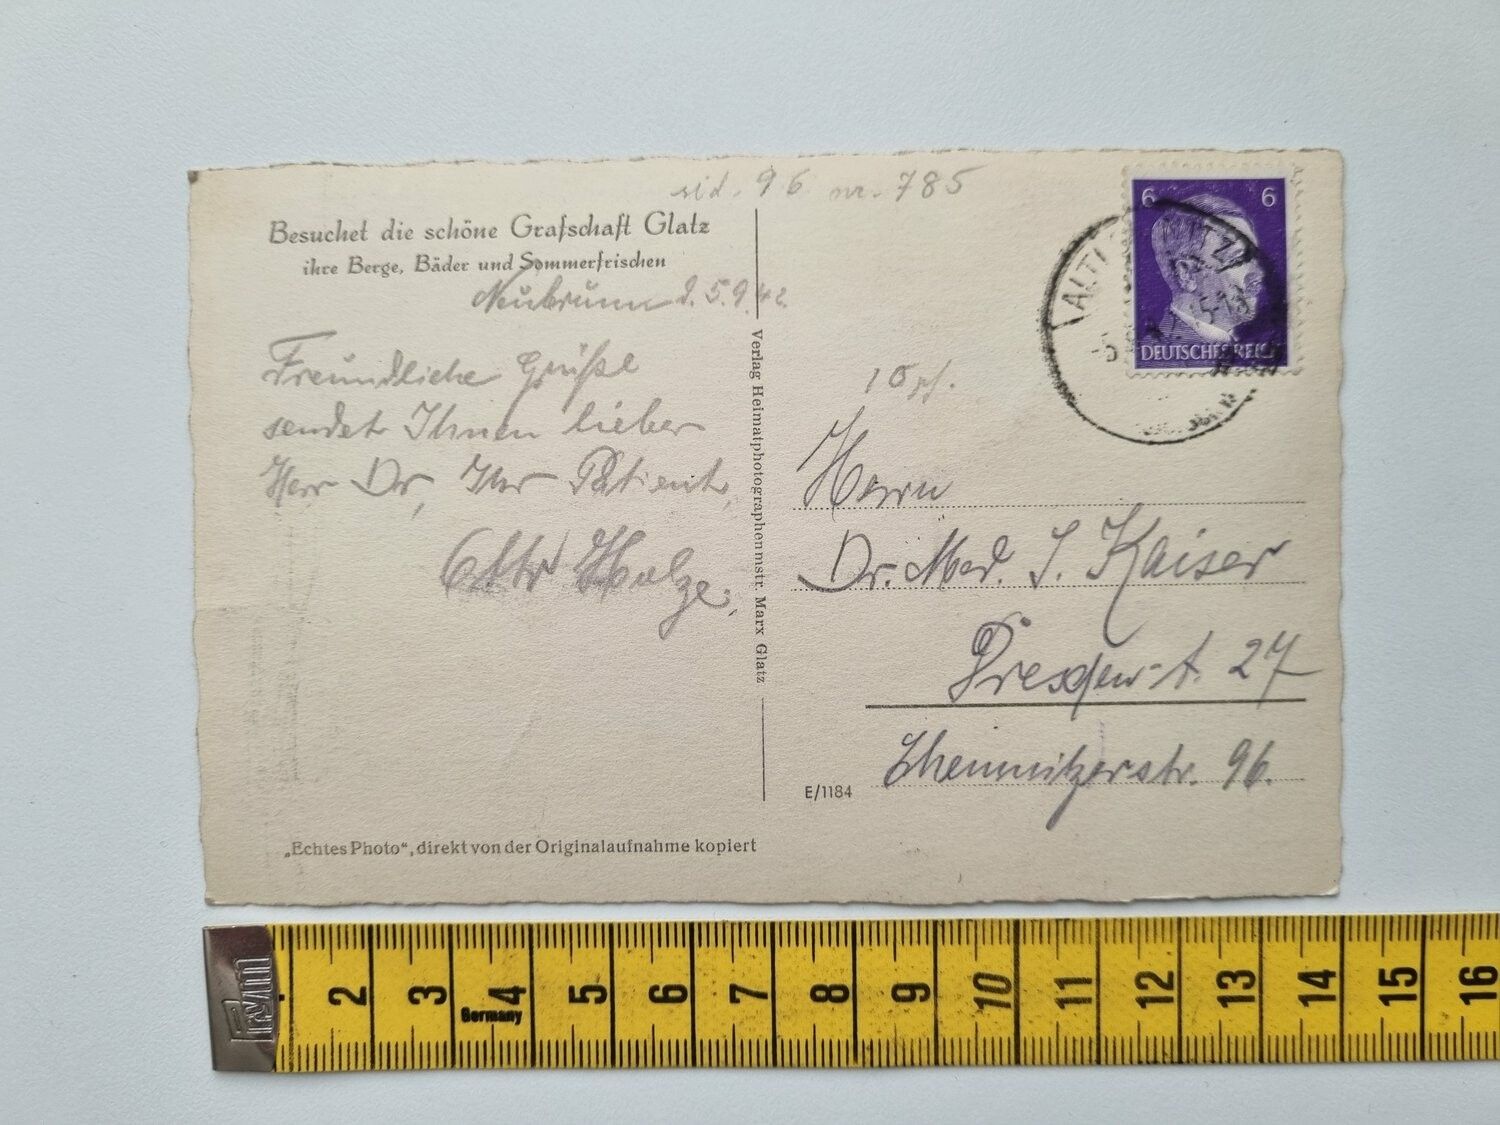 sid. 96 nr. 785
Besuchet die schöne Grafschaft Glatz
ihre Berge, Bäder und Sommerfrischen
Neubrunn d. 5.9.42
Freundliche Grüße
sendet Ihnen lieber
Herr Dr, Ihr Patient,
Otto Holze.
„Echtes Photo“, direkt von der Originalaufnahme kopiert
Verlag Heimatphotographenmstr. Marx Glatz
6 6
DEUTSCHES REICH
10 pf.
Herrn
Dr. Med. J. Kaiser
Dresden-A. 27
Chemnitzerstr. 96.
E/1184
Prym
2 3 4 5 6 7 8 9 10 11 12 13 14 15 16
Germany